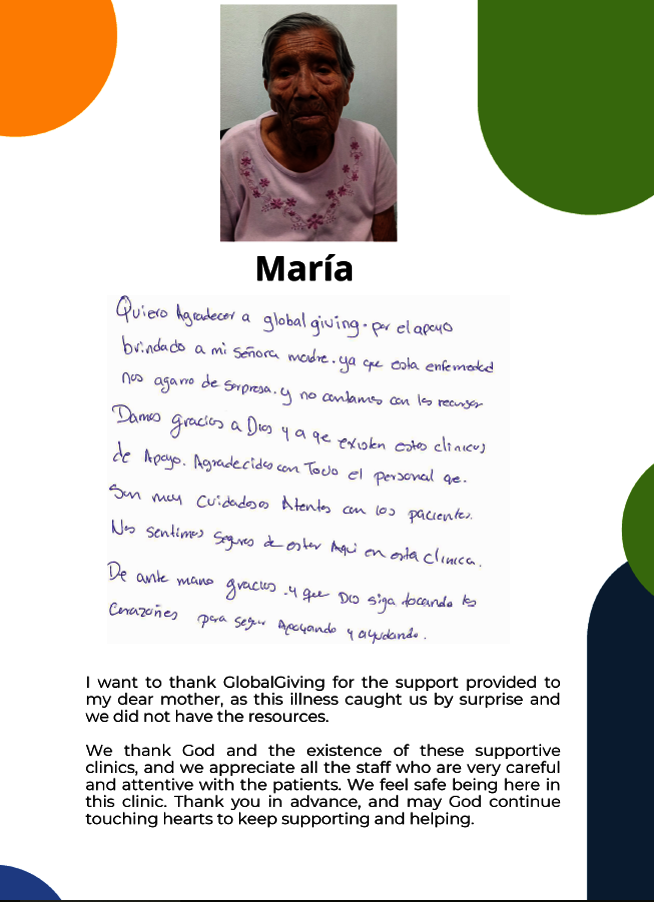 María
Quiero Agradecer a global giving. por el apoyo
brindado a mi señora madre. ya que esta enfermedad
nos agarro de sorpresa. y no contamos con los recursos
Damos gracias a Dios y a qe existen estas clinicas
de Apoyo. Agradecidos con Todo el personal qe.
Son muy cuidadosos Atentos con los pacientes.
Nos sentimos seguros de estar Aqui en esta clinica.
De ante mano gracias. y que Dios siga tocando los
Corazones para seguir Apoyando y ayudando.
I want to thank GlobalGiving for the support provided to
my dear mother, as this illness caught us by surprise and
we did not have the resources.
We thank God and the existence of these supportive
clinics, and we appreciate all the staff who are very careful
and attentive with the patients. We feel safe being here in
this clinic. Thank you in advance, and may God continue
touching hearts to keep supporting and helping.